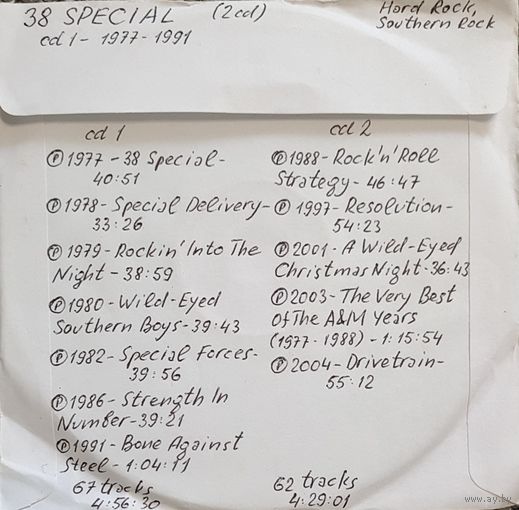 38 SPECIAL (2cd) Hard Rock,
Southern Rock
cd 1 - 1977-1991
cd 1
Ⓟ1977-38 Special-
40:51
Ⓟ1978-Special Delivery-
33:26
Ⓟ1979-Rockin' Into The
Night-38:59
Ⓟ1980-Wild-Eyed
Southern Boys-39:43
Ⓟ1982-Special Forces-
39:56
Ⓟ1986-Strength In
Number-39:21
Ⓟ1991-Bone Against
Steel-1:04:11
67 tracks
4:56:30
cd 2
Ⓟ1988-Rock'n'Roll
Strategy-46:47
Ⓟ1997-Resolution-
54:23
Ⓟ2001-A Wild-Eyed
Christmas Night-36:43
Ⓟ2003-The Very Best
Of The A&M Years
(1977-1988)-1:15:54
Ⓟ2004-Drivetrain-
55:12
62 tracks
4:29:01
www.ay.by